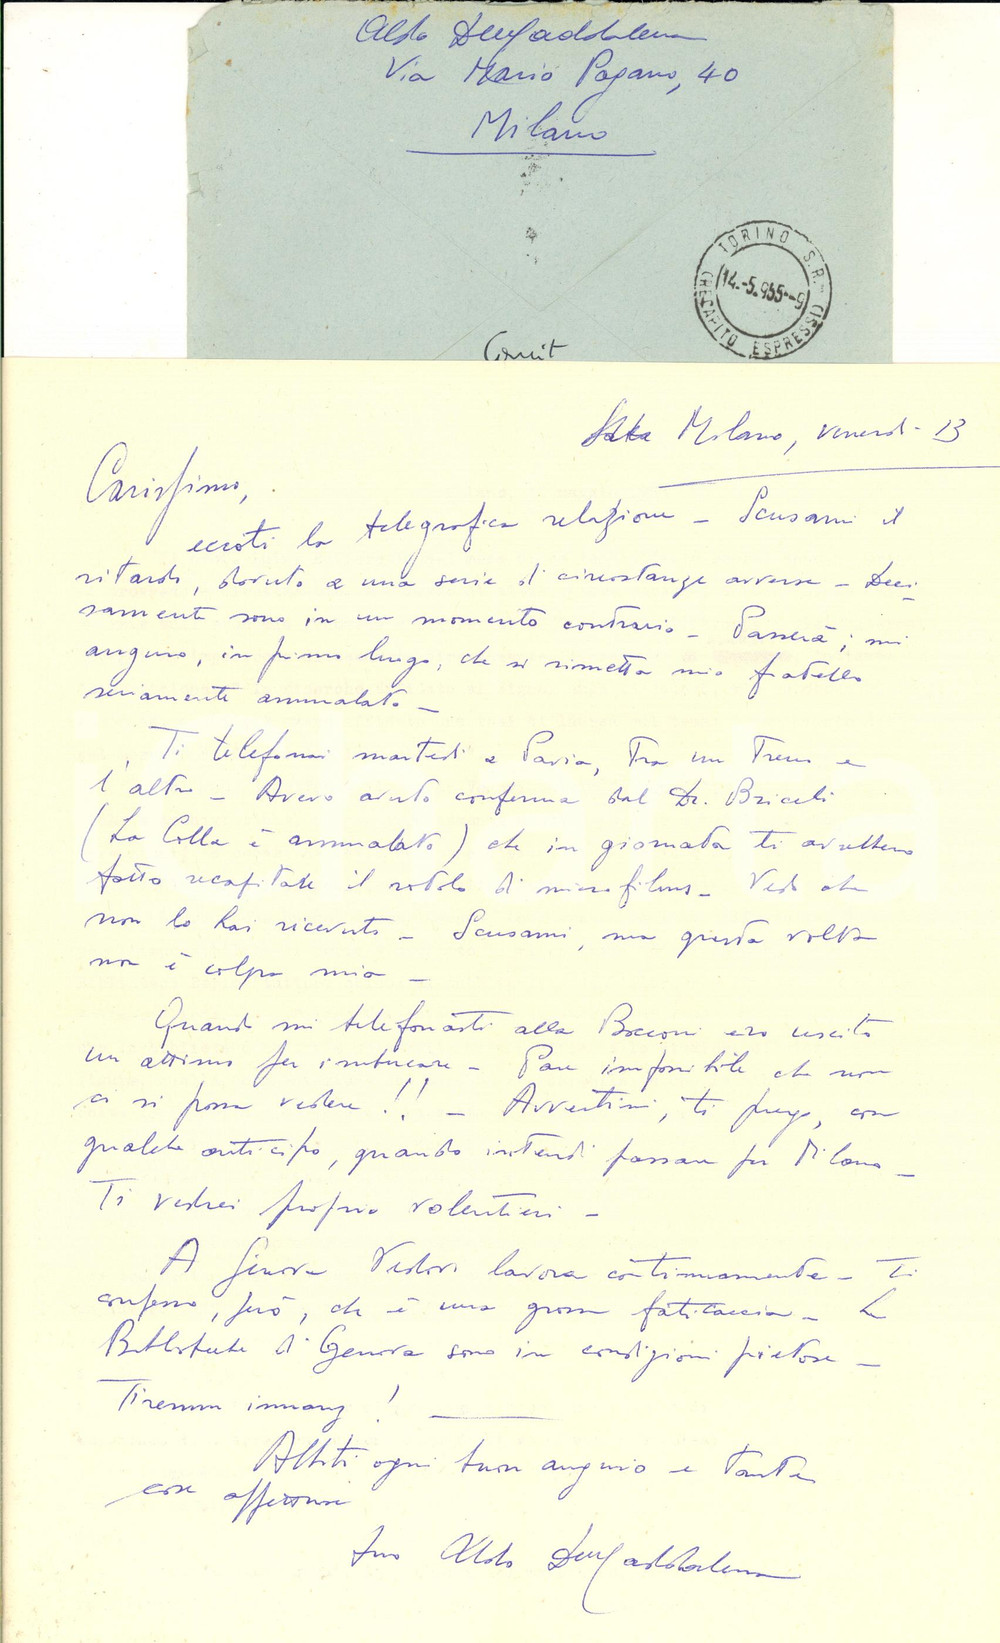 Aldo De Maddalena
Via Mario Pagano, 40
Milano
TORINO S.R.
14.-5.955--9
(RECAPITO ESPRESSI)
Milano, venerdì 13
Carissimo,
eccoti la telegrafica relazione - Scusami il
ritardo, dovuto a una serie di circostanze avverse - Deci-
samente sono in un momento contrario - Passerà; mi
auguro, in primo luogo, che si rimetta mio fratello
seriamente ammalato -
Ti telefonai martedì a Pavia, tra un treno e
l'altro - Avevo avuto conferma dal Dr.
(La Colla è ammalato) che in giornata ti avrebbero
fatto recapitare il rotolo di microfilms - Vedo che
non lo hai ricevuto - Scusami, ma questa volta
non è colpa mia -
Quando mi telefonasti alla Bocconi ero uscito
un attimo per imbucare - Pare impossibile che non
ci si possa vedere!! - Avvertimi, ti prego, con
qualche anticipo, quando intendi passare per Milano -
Ti vedrei proprio volentieri -
A Genova lavora continuamente - Ti
confesso, però, che è una grossa faticaccia - Le
Biblioteche di Genova sono in condizioni pietose -
Tiremm innanz!
Abbiti ogni buon augurio e tante
cose affettuose
tuo Aldo De Maddalena